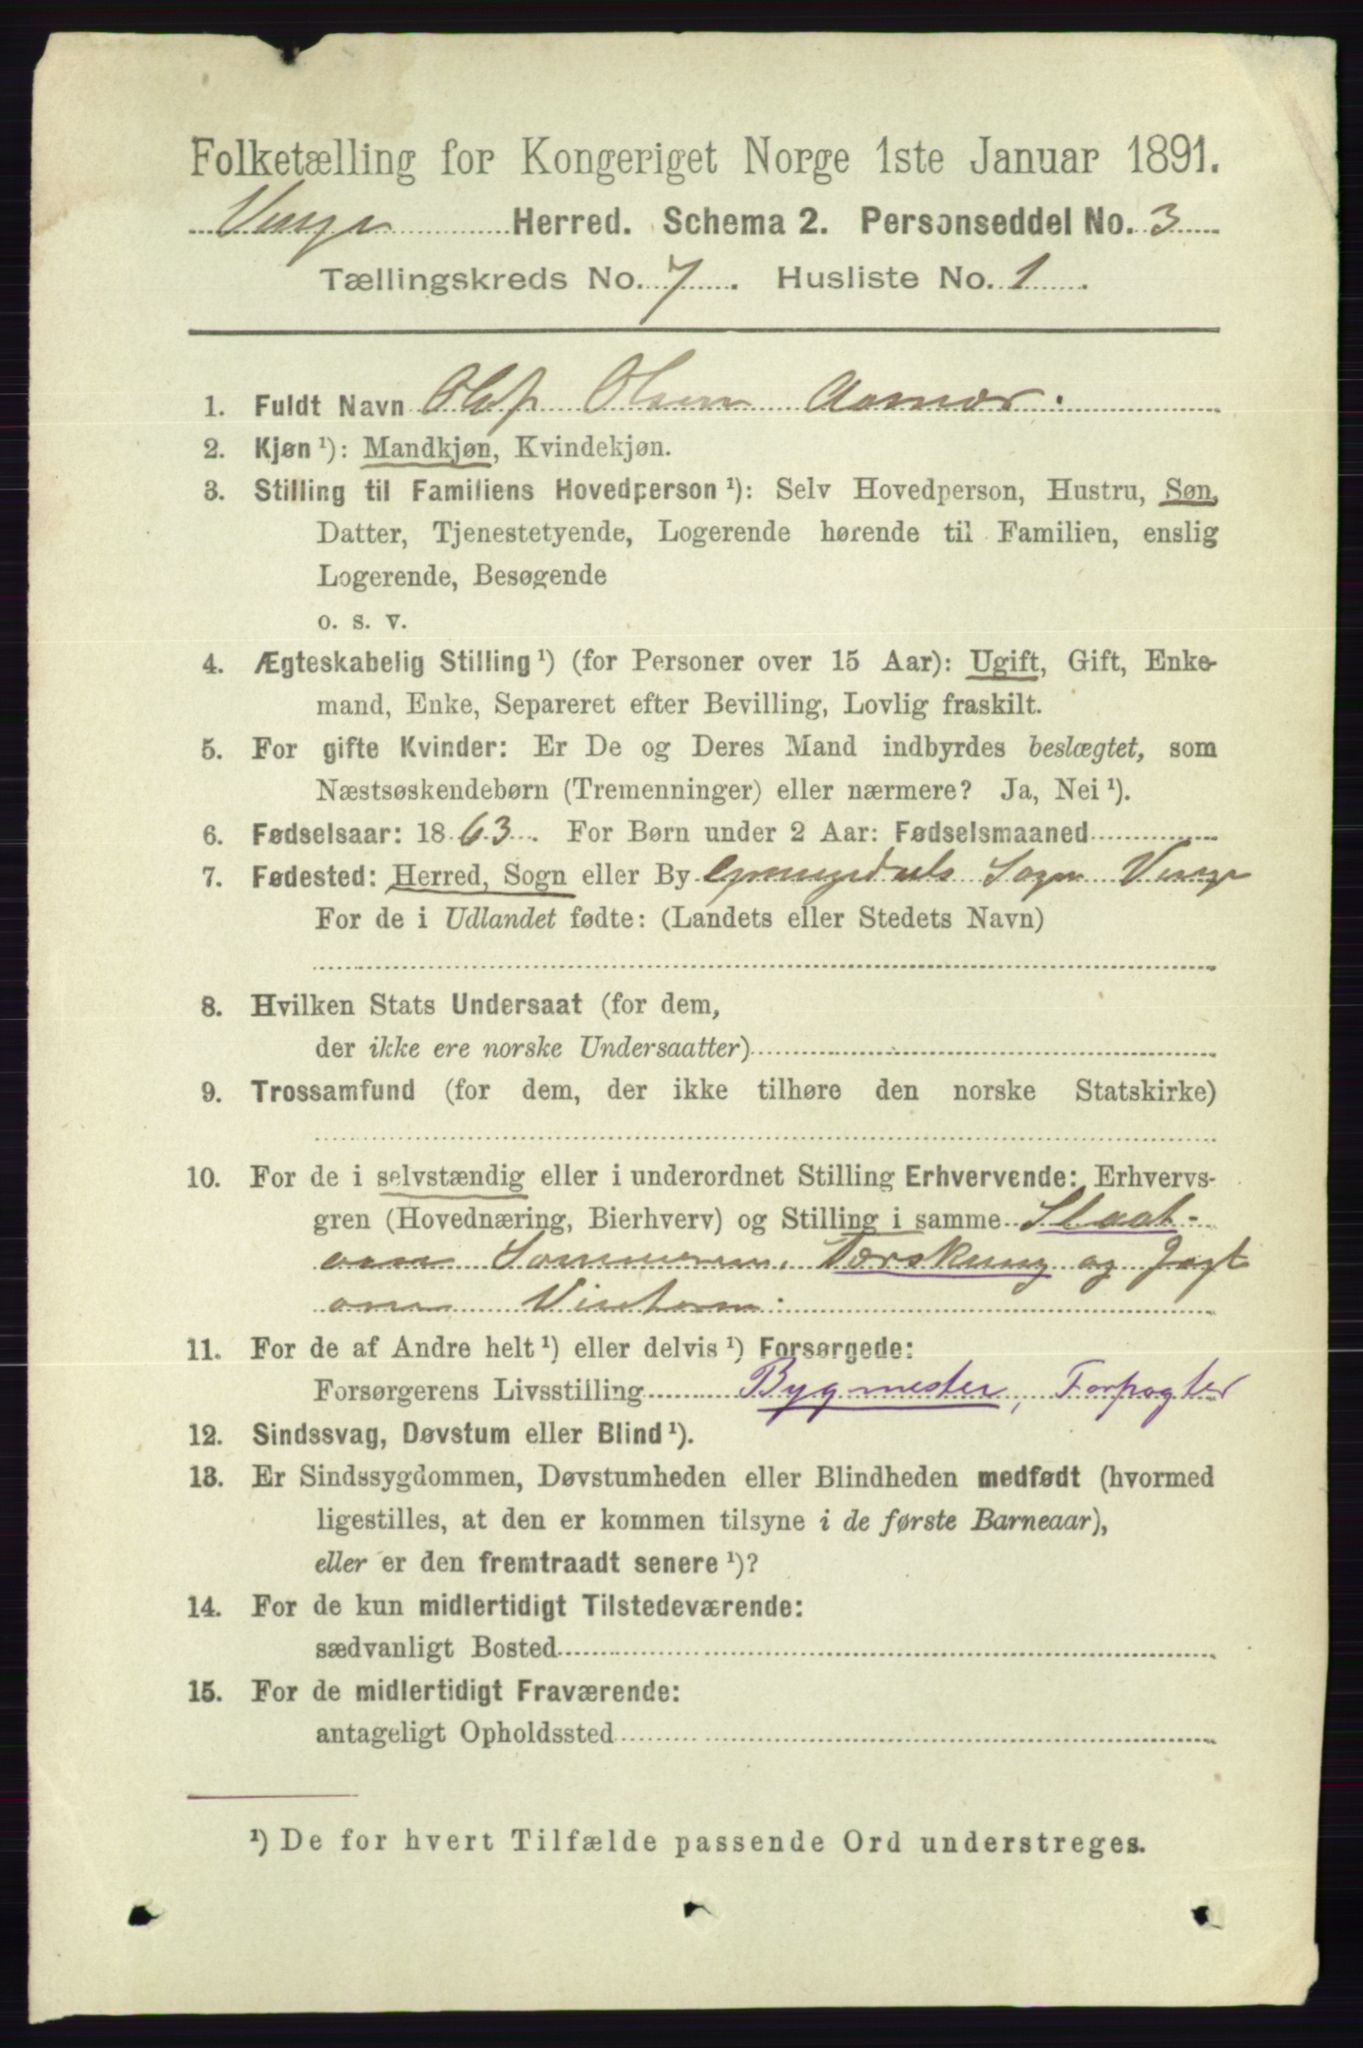 Folketælling for Kongeriget Norge 1ste Januar 1891.
Vinje Herred. Schema 2. Personseddel No. 3
Tællingskreds No. 7. Husliste No. 1.
1. Fuldt Navn Olaf Olsen Aamor.
2. Kjøn ¹): Mandkjøn, Kvindekjøn.
3. Stilling til Familiens Hovedperson ¹): Selv Hovedperson, Hustru, Søn,
Datter, Tjenestetyende, Logerende hørende til Familien, enslig
Logerende, Besøgende
o. s. v.
4. Ægteskabelig Stilling ¹) (for Personer over 15 Aar): Ugift, Gift, Enke-
mand, Enke, Separeret efter Bevilling, Lovlig fraskilt.
5. For gifte Kvinder: Er De og Deres Mand indbyrdes beslægtet, som
Næstsøskendebørn (Tremenninger) eller nærmere? Ja, Nei ¹).
6. Fødselsaar: 1863. For Børn under 2 Aar: Fødselsmaaned
7. Fødested: Herred, Sogn eller By Grungedals Sogn Vinje
For de i Udlandet fødte: (Landets eller Stedets Navn)
8. Hvilken Stats Undersaat (for dem,
der ikke ere norske Undersaatter)
9. Trossamfund (for dem, der ikke tilhøre den norske Statskirke)
10. For de i selvstændig eller i underordnet Stilling Erhvervende: Erhvervs-
gren (Hovednæring, Bierhverv) og Stilling i samme Slaat-
om Sommeren. Tærskning og Jagt
om Vinteren:
11. For de af Andre helt ¹) eller delvis ¹) Forsørgede:
Forsørgerens Livsstilling Bygmester, Forpagter
12. Sindssvag, Døvstum eller Blind ¹).
13. Er Sindssygdommen, Døvstumheden eller Blindheden medfødt (hvormed
ligestilles, at den er kommen tilsyne i de første Barneaar),
eller er den fremtraadt senere ¹)?
14. For de kun midlertidigt Tilstedeværende:
sædvanligt Bosted
15. For de midlertidigt Fraværende:
antageligt Opholdssted
¹) De for hvert Tilfælde passende Ord understreges.